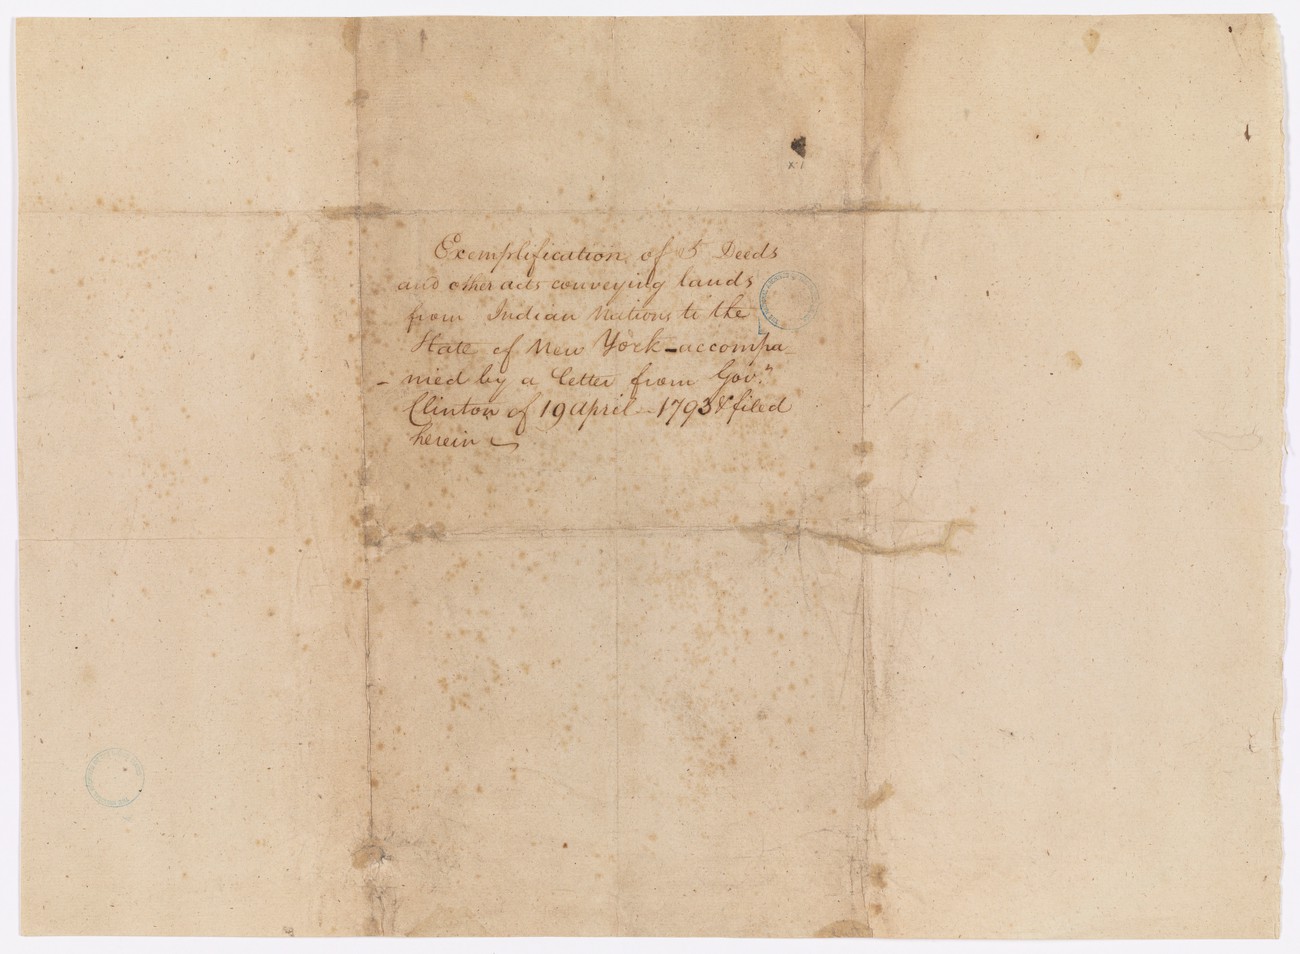 Exemplification of 5 Deeds
and other acts conveying lands
from Indian Nations to the
State of New York - accompa-
- nied by a letter from Gov.ʳ
Clinton of 19 April - 1793 & filed
herein